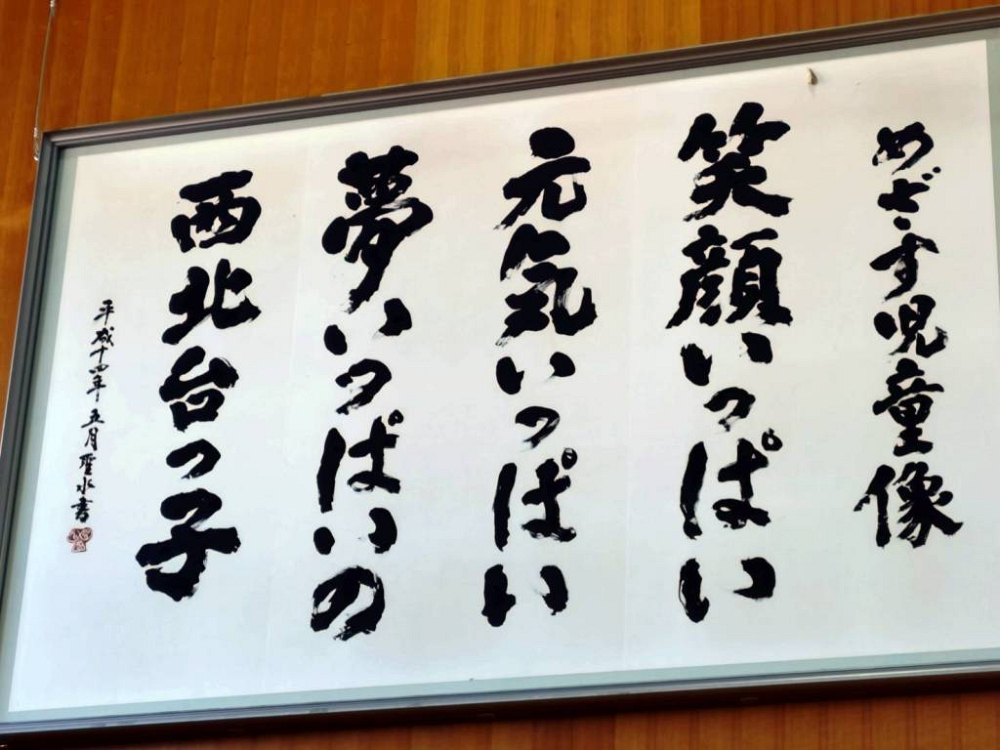 めざす児童像
笑顔いっぱい
元気いっぱい
夢いっぱいの
西北台っ子
平成十四年五月聖水書